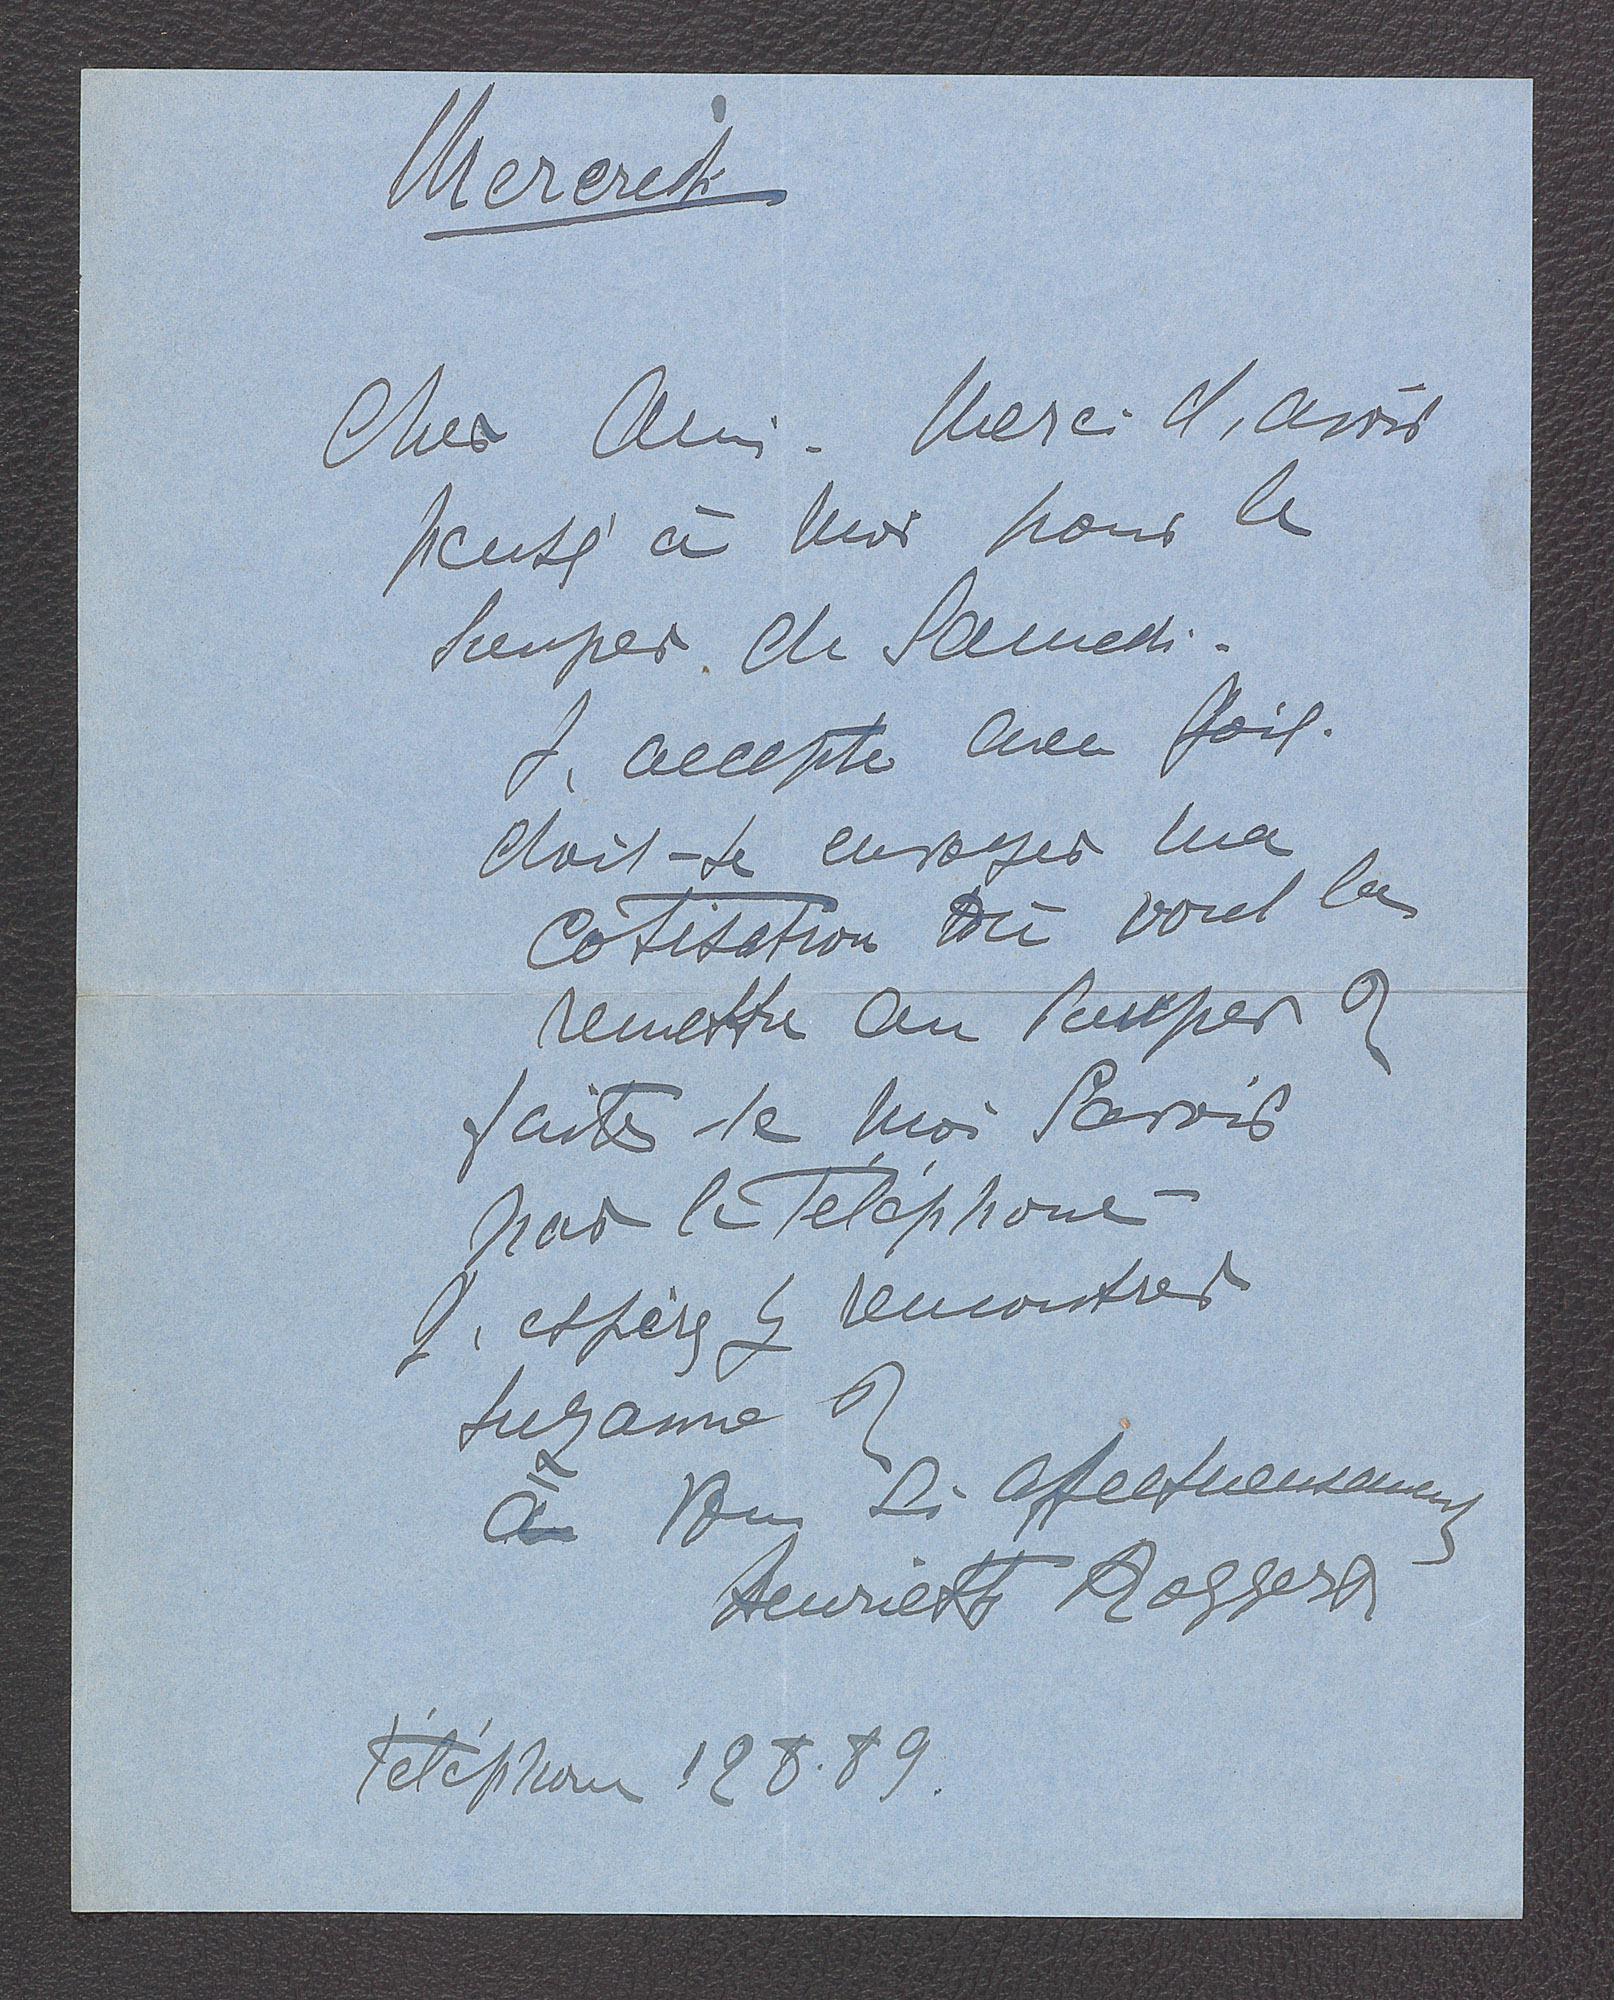 Mercredi
Cher Ami. Merci d'avoir
pensé à moi pour le
souper de Samedi.
J'accepte avec joie.
dois-je envoyer ma
cotisation ou vous la
remettre au souper ?
faites-le moi savoir
par le Téléphone -
J'espère y rencontrer
Suzanne ?
à vous si affectueusement
Henriette Roggers
Téléphone 128.89.